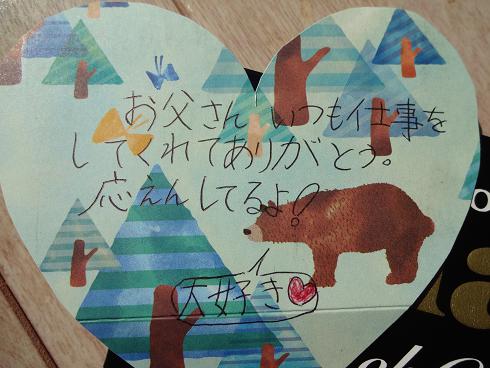 お父さん いつも仕事を
してくれてありがとう。
応えんしてるよ♡
大好き♥